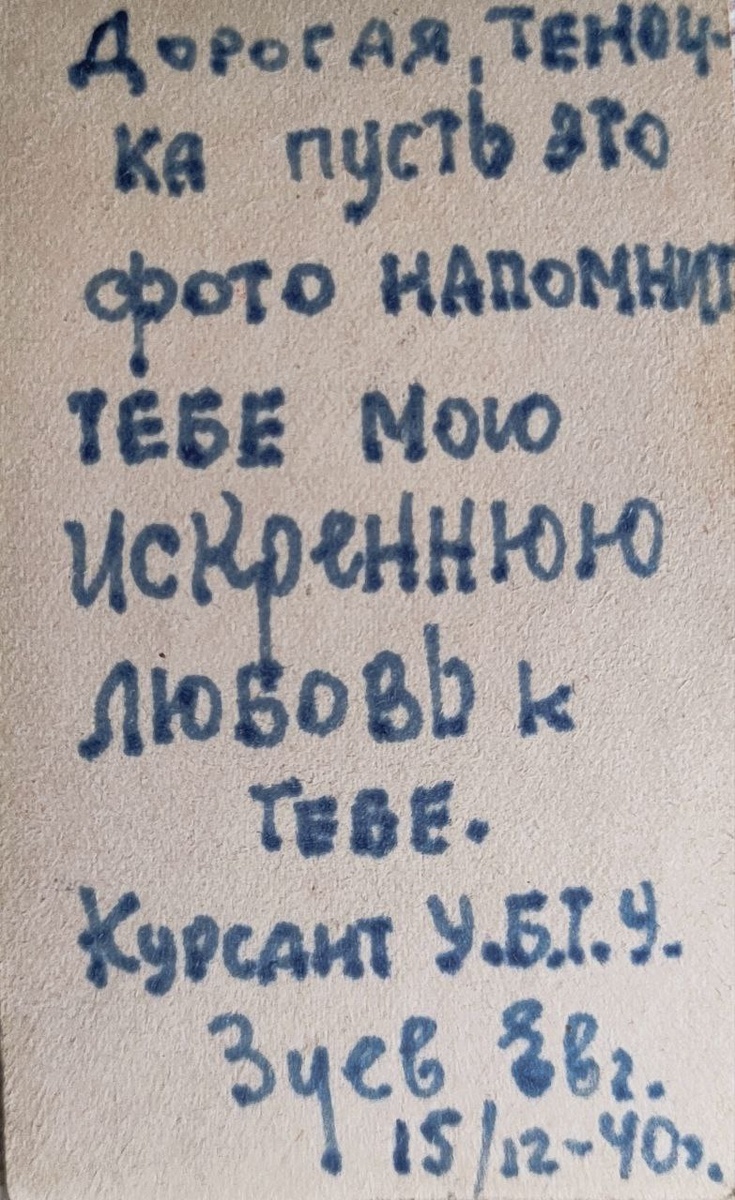 Дорогая, Теноч-
ка пусть это
фото напомнит
тебе мою
искреннюю
любовь к
тебе.
Курсант У.Б.Т.У.
Зуев Евг.
15/12-40г.